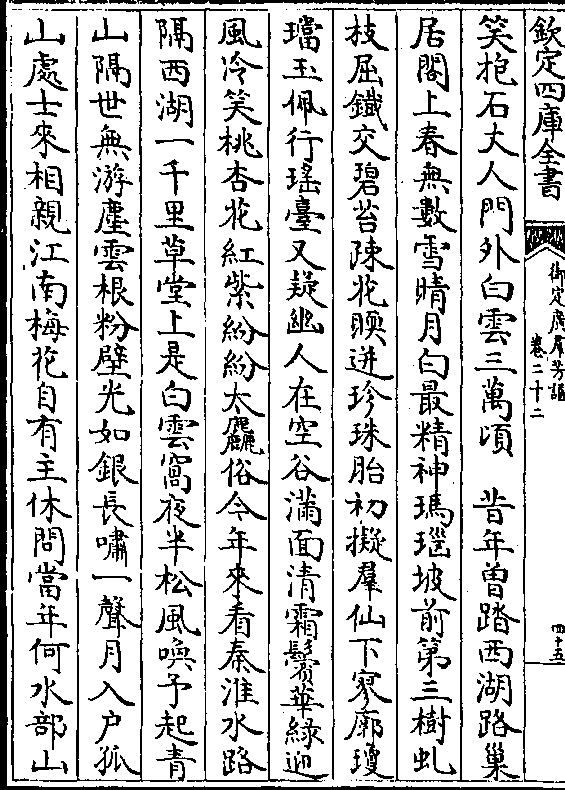 欽定四庫全書
御定廣羣芳譜
卷二十二
四十五
笑抱石丈人門外白雲三萬頃　昔年曽踏西湖路巢
居閣上春無數雪晴月白最精神瑪瑙坡前第三樹虬
枝屈鐵交碧苔疎花暎迸珍珠胎初擬羣仙下寥廓瓊
璫玉佩行瑤臺又疑幽人在空谷滿面清霜鬢華緑迎
風冷笑桃杏花紅紫紛紛太麤俗今年來看秦淮水路
隔西湖一千里草堂上是白雲窩夜半松風喚予起青
山隔世無游塵雲根粉壁光如銀長嘯一聲月入户孤
山處士來相親江南梅花自有主休問當年何水部山